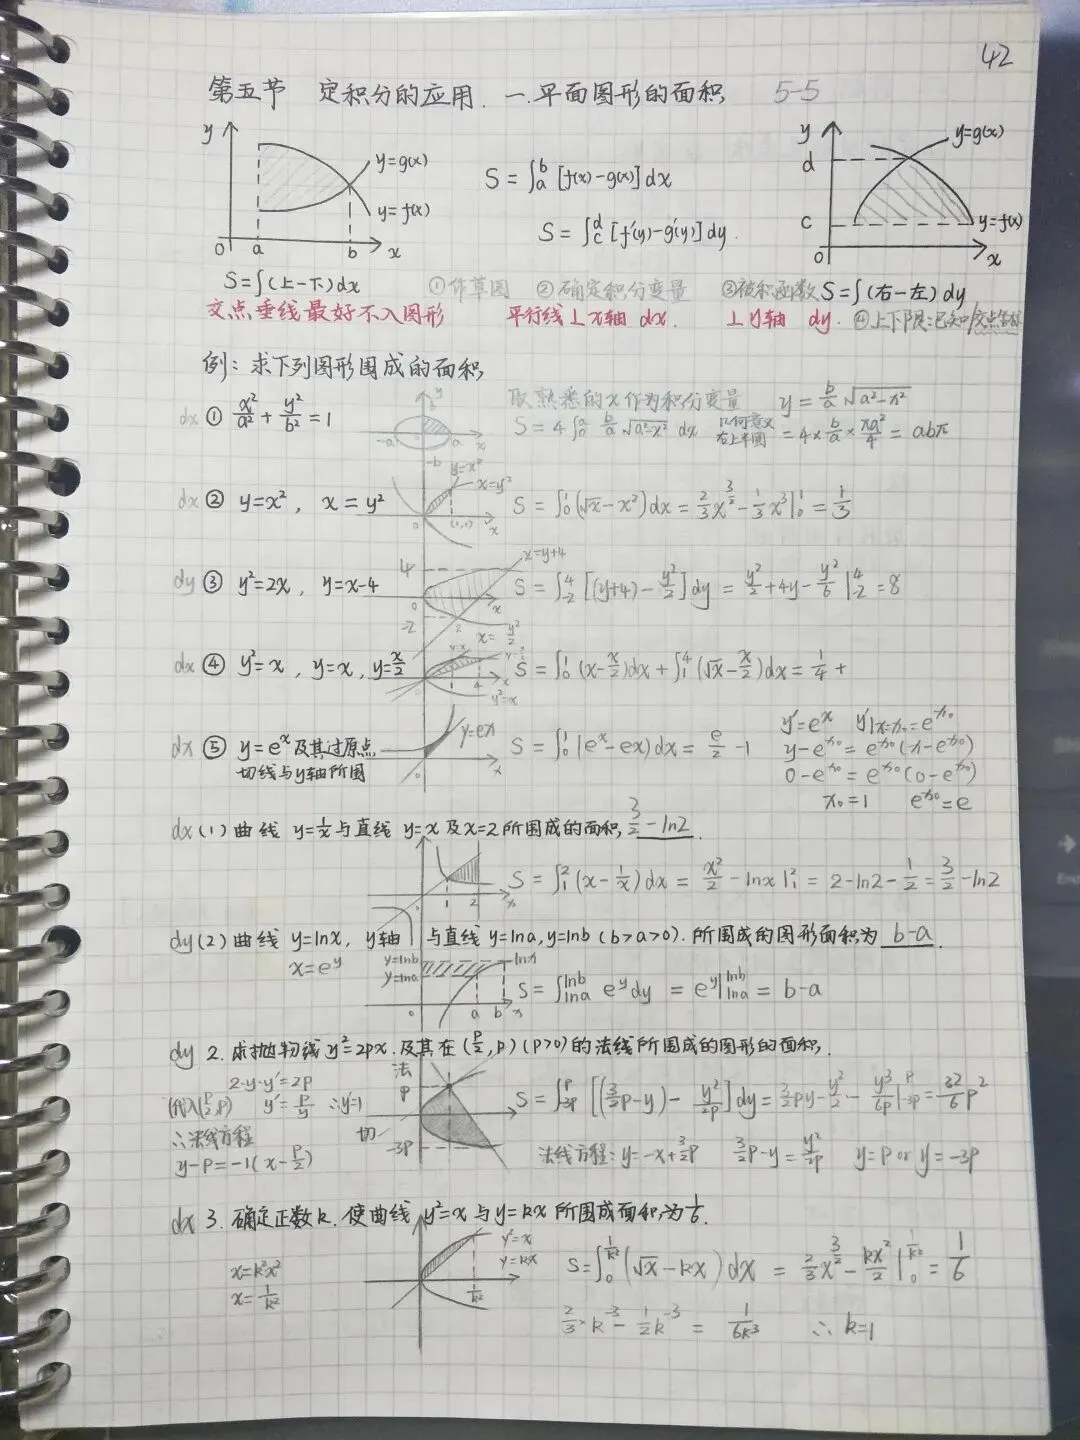 42
第五节 定积分的应用. 一.平面图形的面积 5-5
y y=g(x) y=f(x) 0 a b x
S=∫_a^b [f(x)-g(x)]dx
S=∫_c^d [f(y)-g(y)]dy.
y d c y=g(x) y=f(x) 0 x
S=∫(上-下)dx ①作草图 ②确定积分变量 ③被积函数 S=∫(右-左)dy
交点垂线最好不入图形 平行线⊥x轴 dx. ⊥y轴 dy. ④上下限:已知/交点坐标
例: 求下列图形围成的面积
dx ① x²/a²+y²/b²=1 y b -a a x -b 取熟悉的x作为积分变量 y=b/a √(a²-x²)
S=4∫_0^a b/a √(a²-x²) dx 几何意义 右上半圆 =4×b/a×πa²/4=abπ
dx ② y=x², x=y² y=x² x=y² 0 (1,1) x S=∫_0^1(√x-x²)dx=2/3 x^(3/2)-1/3 x³|_0^1=1/3
dy ③ y²=2x, y=x-4 4 x=y+4 0 x -2 2 x=y²/2 S=∫_-2^4 [(y+4)-y²/2]dy=y²/2+4y-y²/6|_-2^4=8
dx ④ y²=x, y=x, y=x/2 y=x 4 x y²=x S=∫_0^1(x-x/2)dx+∫_1^4(√x-x/2)dx=1/4+
dx ⑤ y=e^x及其过原点 y=ex 0 x S=∫_0^1(e^x-ex)dx=e/2-1
切线与y轴所围
y'=e^x y'|x=x₀=e^x₀
y-e^x₀=e^x₀(x-e^x₀)
0-e^x₀=e^x₀(0-e^x₀)
x₀=1 e^x₀=e
dx (1) 曲线 y=1/x与直线 y=x及x=2所围成的面积, 3/2-ln2.
0 1 2 x S=∫_1^2(x-1/x)dx=x²/2-lnx|_1^2=2-ln2-1/2=3/2-ln2
dy (2) 曲线 y=lnx, y轴 与直线y=lna,y=lnb (b>a>0).所围成的图形面积为 b-a.
x=e^y y=lnb y=lna lnx 0 a b x S=∫_lna^lnb e^y dy=e^y|_lna^lnb=b-a
dy 2. 求抛物线y²=2px.及其在(p/2,p)(p>0)的法线所围成的图形的面积.
2·y·y'=2p
代入(p/2,p) y'=p/y ∴y'=1
∴法线方程
y-p=-1(x-p/2)
法 p 切 -3p
S=∫_-3p^p [(3/2p-y)-y²/2p]dy=3/2py-y²/2-y³/6p|_-3p^p=32/6 p²
法线方程: y=-x+3/2p 3/2p-y=y²/2p y=p or y=-3p
dx 3. 确定正数k.使曲线y²=x与y=kx所围成面积为1/6.
x=k²x²
x=1/k²
y²=x
y=kx
1/k²
S=∫_0^(1/k²)(√x-kx)dx=2/3 x^(3/2)-kx²/2|_0^(1/k²)=1/6
2/3·k^-3-1/2k^-3=1/6k³ ∴k=1